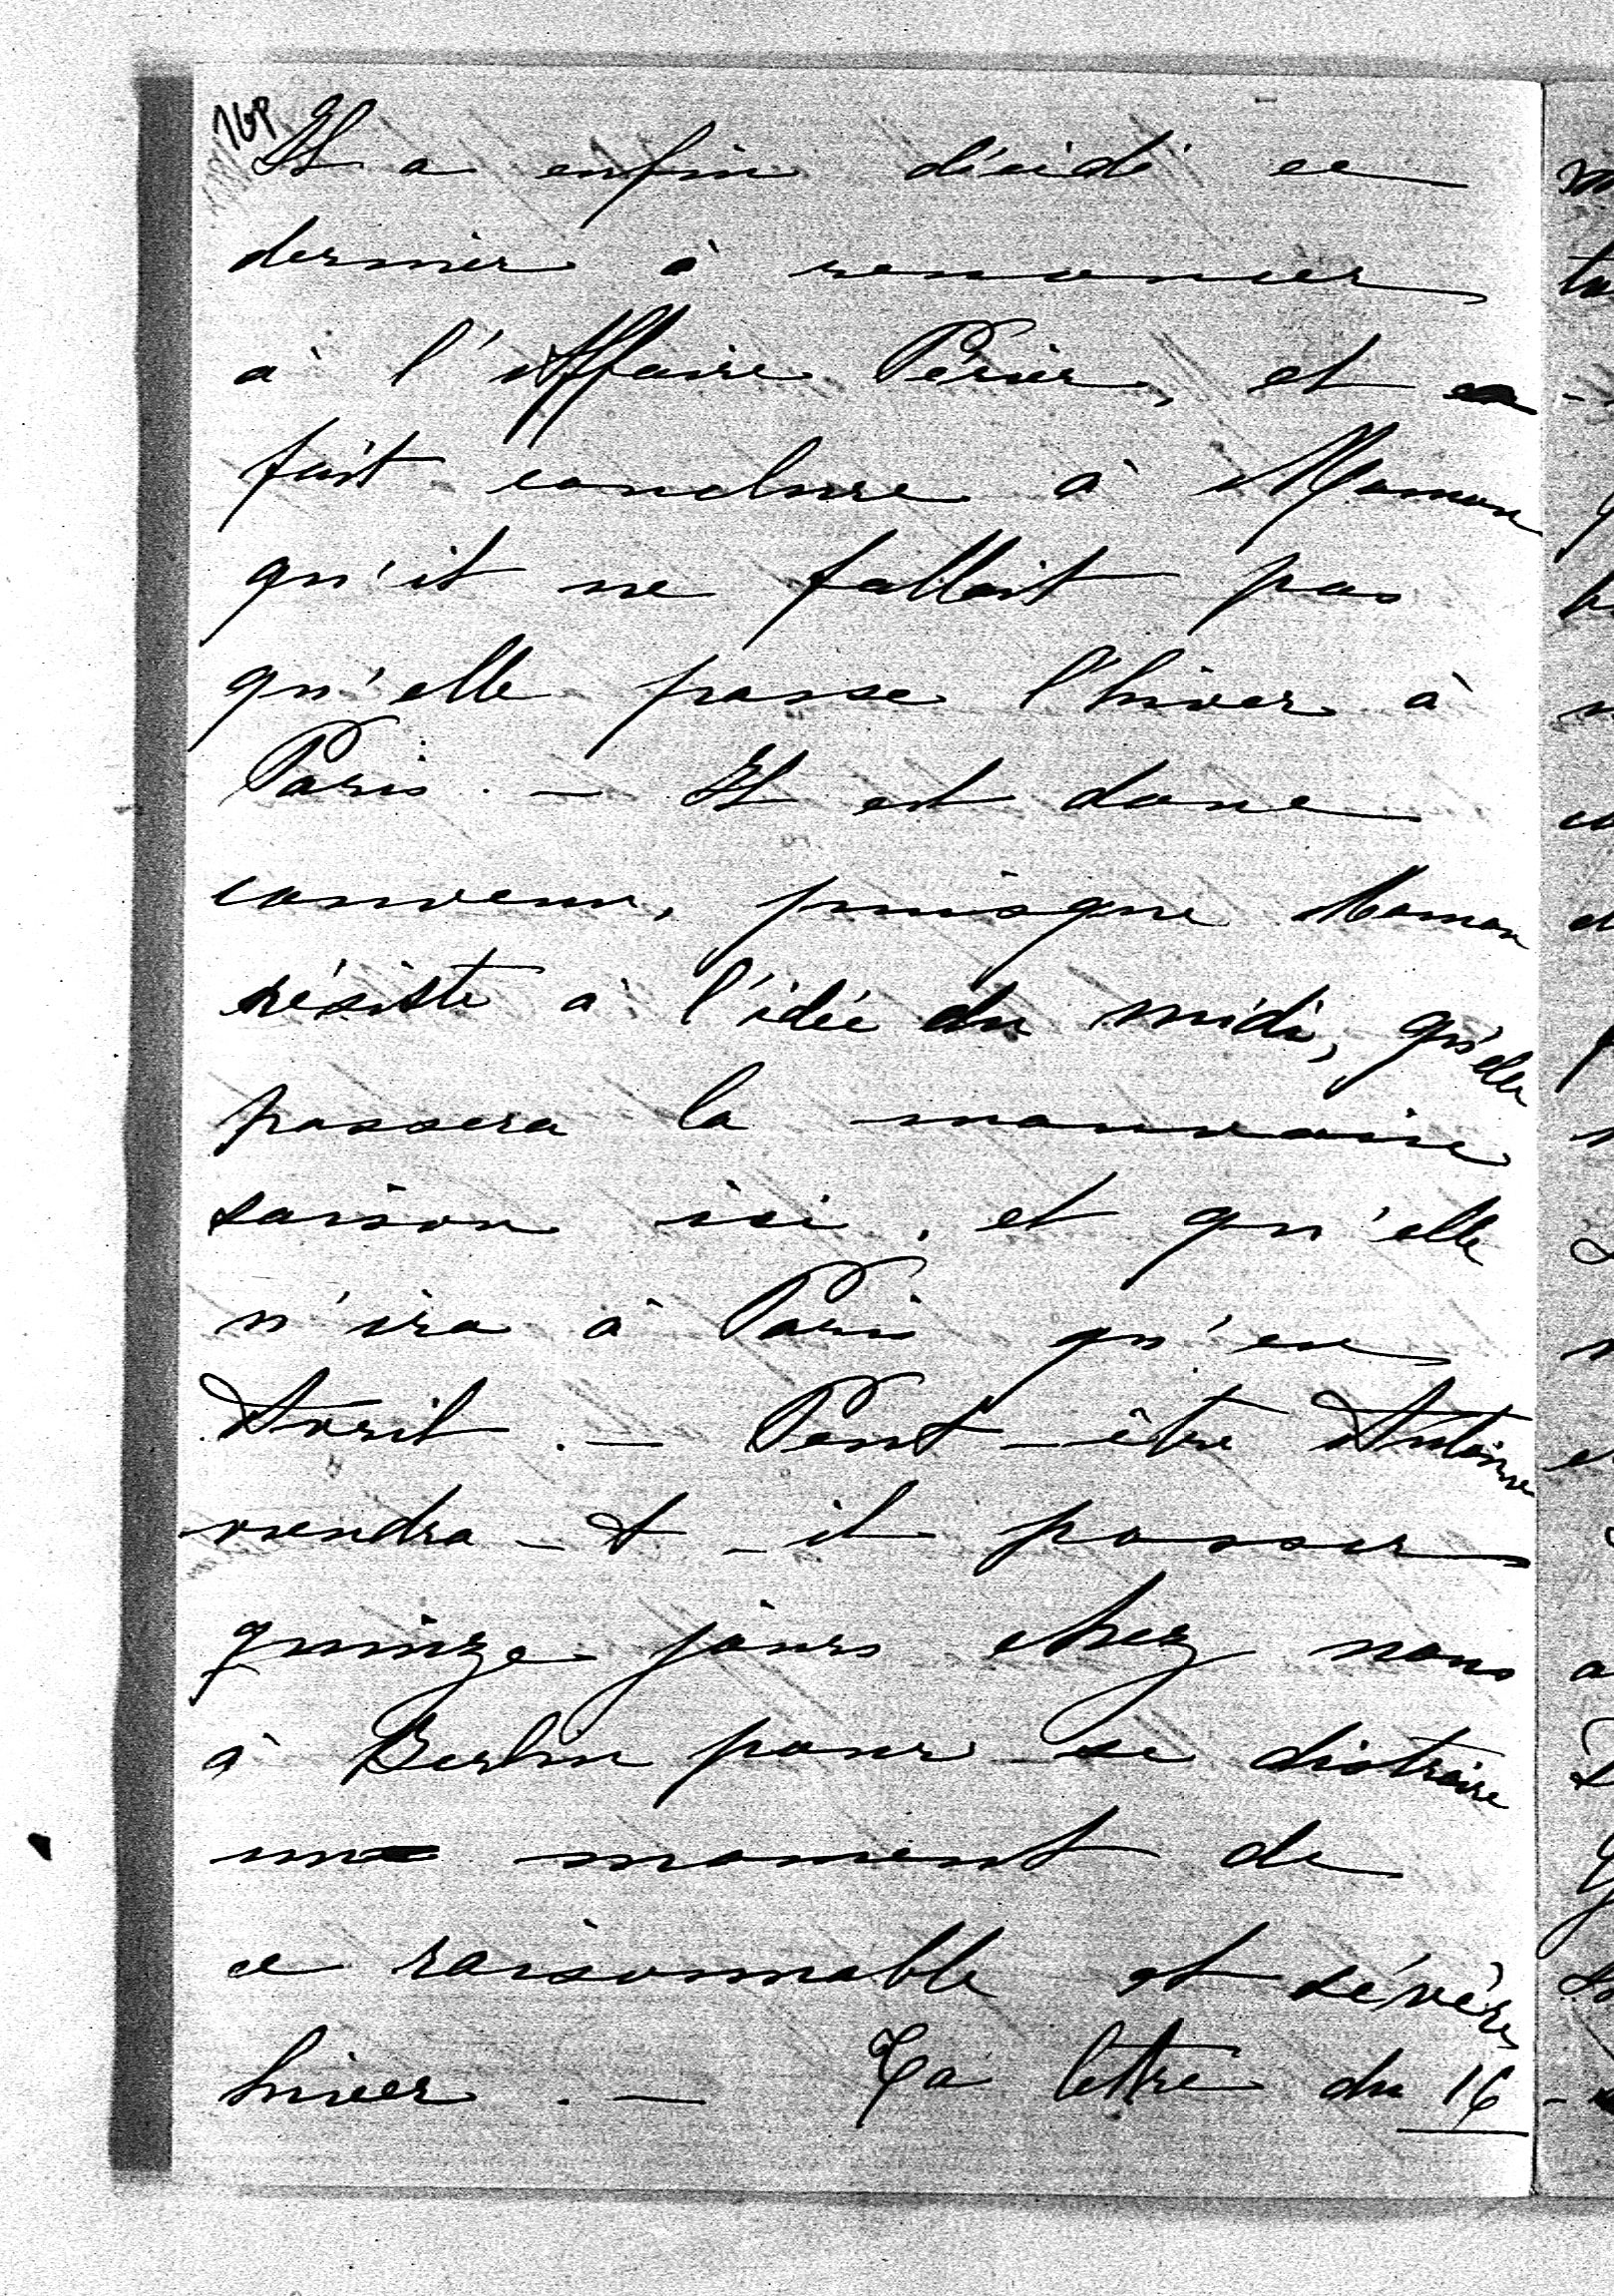 Il a enfin décidé ce
dernier à renoncer
à l'Affaire Périer, et
fait conclure à Maman
qu'il ne fallait pas
qu'elle passe l'hiver à
Paris. — Il est donc
convenu, puisque Maman
résiste à l'idée du midi, qu'elle
passera la mauvaise
saison ici, et qu'elle
n'ira à Paris qu'en
Avril. — Peut-être Antoine
viendra-t-il passer
quinze jours chez nous
à Berlin pour se distraire
un moment de
ce raisonnable et sévère
hiver. — Ta lettre du 16